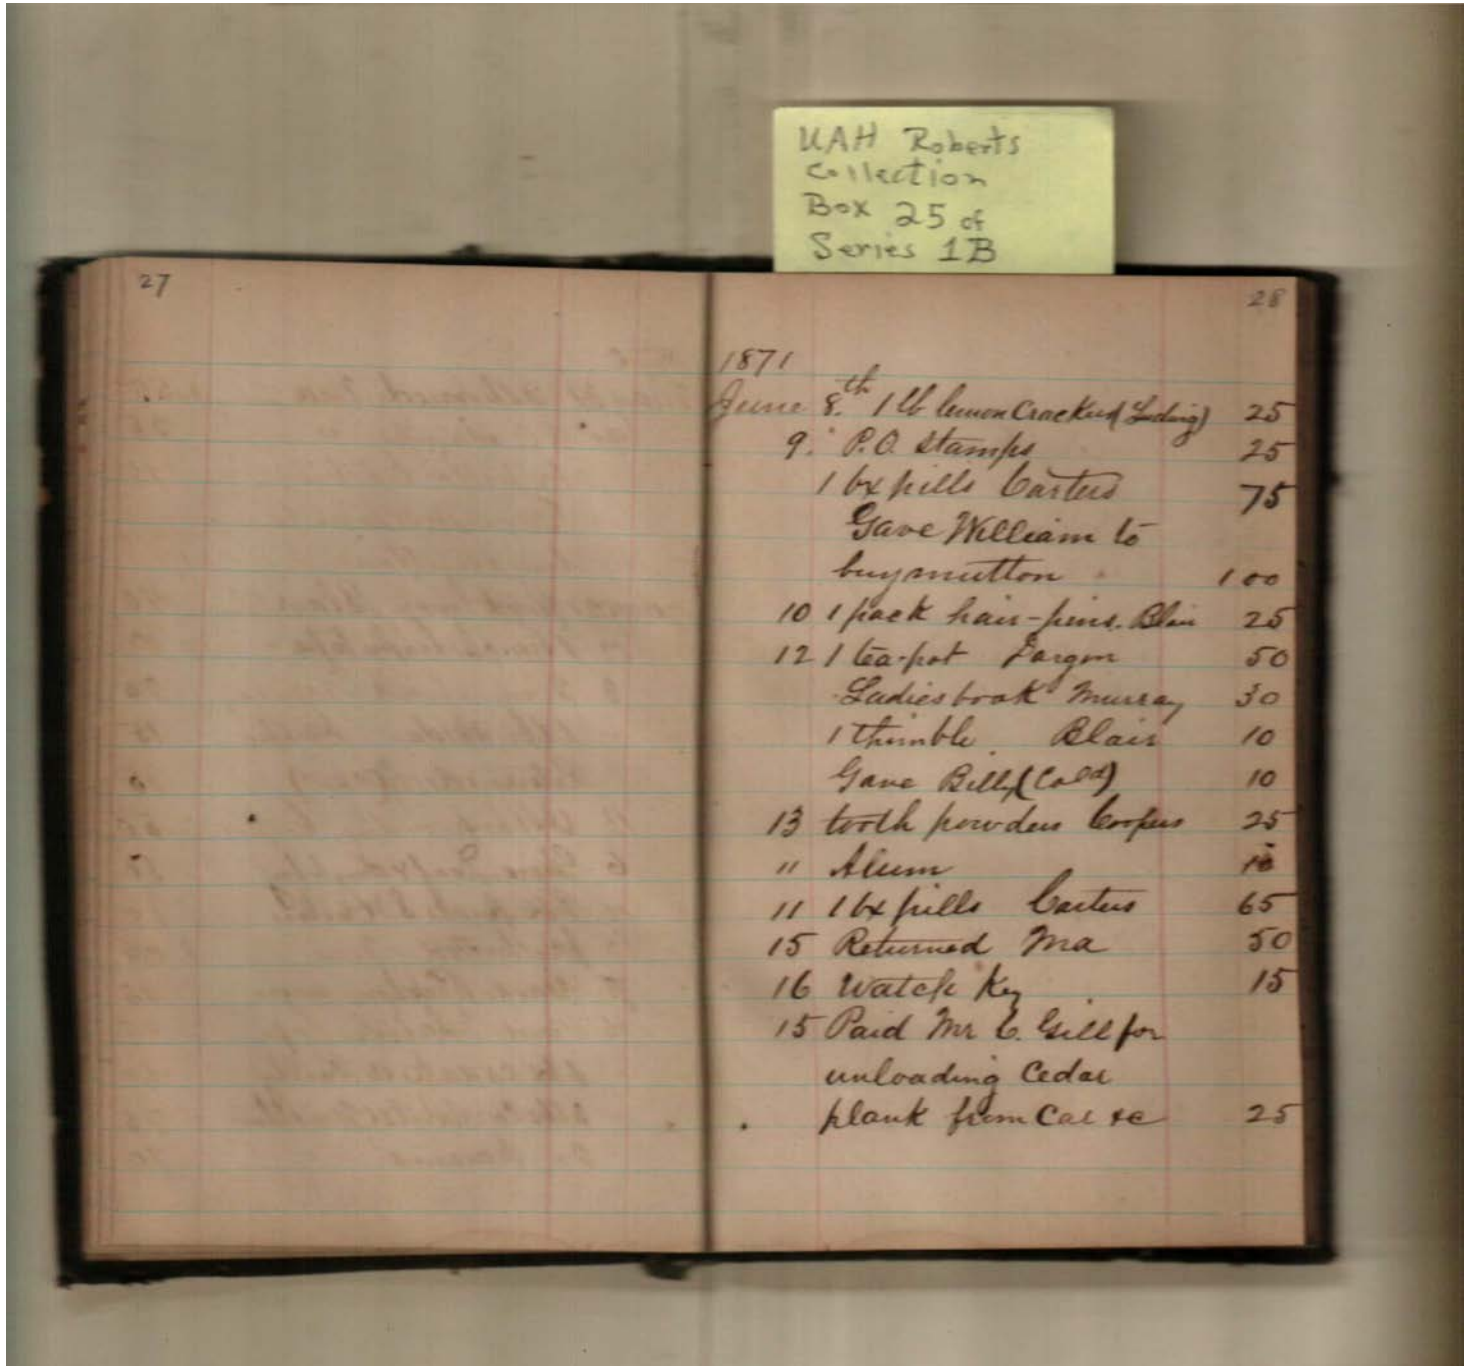 UAH Roberts
Collection
Box 25 of
Series 1B
27
28
1871
June 8.th 1 lb lemon Crackers 25
9. P.O. Stamps 25
1 bx pills Carters 75
Gave William to
buy mutton 1 00
10 1 pack hair-pins. Blair 25
12 1 tea-pot 50
Ladies book Murray 30
1 thimble Blair 10
Gave Billy (Cold) 10
13 tooth powders Coopers 25
" Alum 10
11 1 bx pills Carters 65
15 Returned Ma 50
16 Watch Key 15
15 Paid Mr C. Gill for
unloading Cedar
plank from Car &c 25